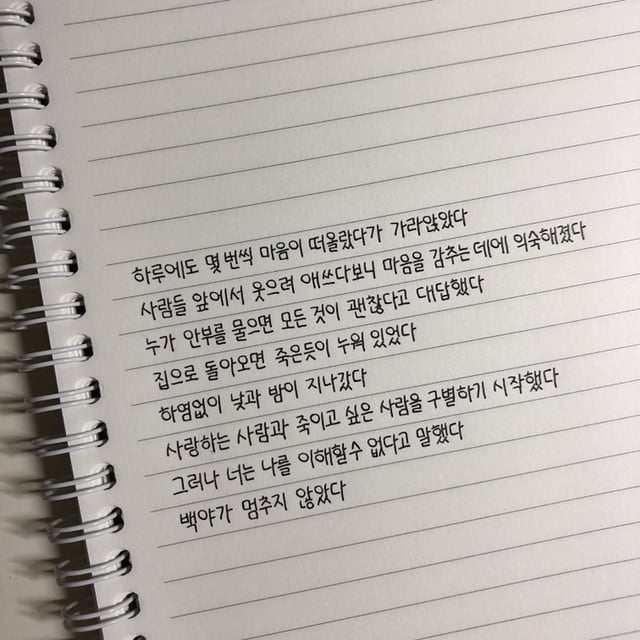 하루에도 몇 번씩 마음이 떠올랐다가 가라앉았다
사람들 앞에서 웃으려 애쓰다보니 마음을 감추는 데에 익숙해졌다
누가 안부를 물으면 모든 것이 괜찮다고 대답했다
집으로 돌아오면 죽은듯이 누워 있었다
하염없이 낮과 밤이 지나갔다
사랑하는 사람과 죽이고 싶은 사람을 구별하기 시작했다
그러나 너는 나를 이해할수 없다고 말했다
백야가 멈추지 않았다